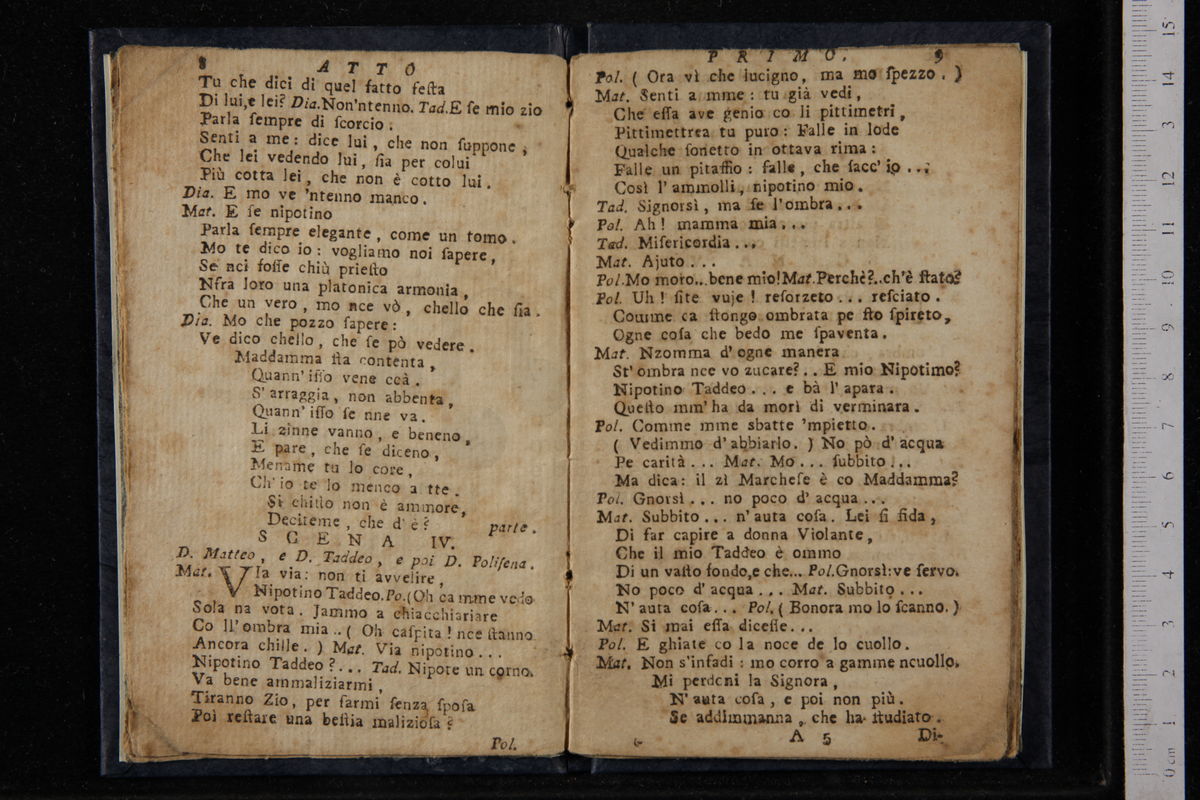 8 ATTO
Tu che dici di quel fatto feſta
Di lui,e lei? Dia.Non'ntenno. Tad.E ſe mio zio
Parla ſempre di ſcorcio.
Senti a me: dice lui, che non ſuppone,
Che lei vedendo lui, ſia per colui
Più cotta lei, che non è cotto lui.
Dia. E mo ve 'ntenno manco.
Mat. E ſe nipotino
Parla ſempre elegante, come un tomo.
Mo te dico io: vogliamo noi ſapere,
Se nci foſſe chiù prieſto
Nfra loro una platonica armonia,
Che un vero, mo nce vò, chello che ſia.
Dia. Mo che pozzo ſapere:
Ve dico chello, che ſe pò vedere.
Maddamma ſta contenta,
Quann' iſſo vene ccà.
S' arraggia, non abbenta,
Quann' iſſo ſe nne va.
Li zinne vanno, e beneno,
E pare, che ſe diceno,
Mename tu lo core,
Ch' io te lo menco a tte.
Si chiſto non è ammore,
Deciteme, che d' è? parte.
SCENA IV.
D. Matteo, e D. Taddeo, e poi D. Poliſena.
Mat. VIa via: non ti avvelire,
Nipotino Taddeo.Po.(Oh ca mme vedo
Sola na vota. Jammo a chiacchiariare
Co ll' ombra mia .. ( Oh caſpita! nce ſtanno
Ancora chille. ) Mat. Via nipotino...
Nipotino Taddeo?... Tad. Nipote un corno.
Va bene ammaliziarmi,
Tiranno Zio, per farmi ſenza ſpoſa
Poi reſtare una beſtia malizioſa?
Pol.
PRIMO. 9
Pol. ( Ora vì che lucigno, ma mo ſpezzo. )
Mat. Senti a mme: tu già vedi,
Che eſſa ave genio co li pittimetri,
Pittimettrea tu puro: Falle in lode
Qualche ſonetto in ottava rima:
Falle un pitaffio: falle, che ſacc' io ..;
Così l' ammolli, nipotino mio.
Tad. Signorsì, ma ſe l'ombra...
Pol. Ah! mamma mia...
Tad. Miſericordia...
Mat. Ajuto...
Pol.Mo moro...bene mio!Mat.Perchè?..ch'è ſtato?
Pol. Uh! ſite vuje! reſorzeto... reſciato.
Comme ca ſtongo ombrata pe ſto ſpireto,
Ogne coſa che bedo me ſpaventa.
Mat. Nzomma d' ogne manera
St' ombra nce vo zucare?.. E mio Nipotimo?
Nipotino Taddeo... e bà l' apara.
Queſto mm' ha da morì di verminara.
Pol. Comme mme sbatte 'mpietto.
( Vedimmo d' abbiarlo. ) No pò d' acqua
Pe carità... Mat. Mo... ſubbito...
Ma dica: il zi Marcheſe è co Maddamma?
Pol. Gnorsì... no poco d' acqua...
Mat. Subbito... n' auta coſa. Lei ſi fida,
Di far capire a donna Violante,
Che il mio Taddeo è ommo
Di un vaſto fondo,e che... Pol.Gnorsì:ve ſervo.
No poco d' acqua... Mat. Subbito...
N' auta coſa... Pol. ( Bonora mo lo ſcanno. )
Mat. Si mai eſſa diceſſe...
Pol. E ghiate co la noce de lo cuollo.
Mat. Non s'infadi: mo corro a gamme ncuollo.
Mi perdoni la Signora,
N' auta coſa, e poi non più.
Se addimmanna, che ha ſtudiato.
A 5 Di-